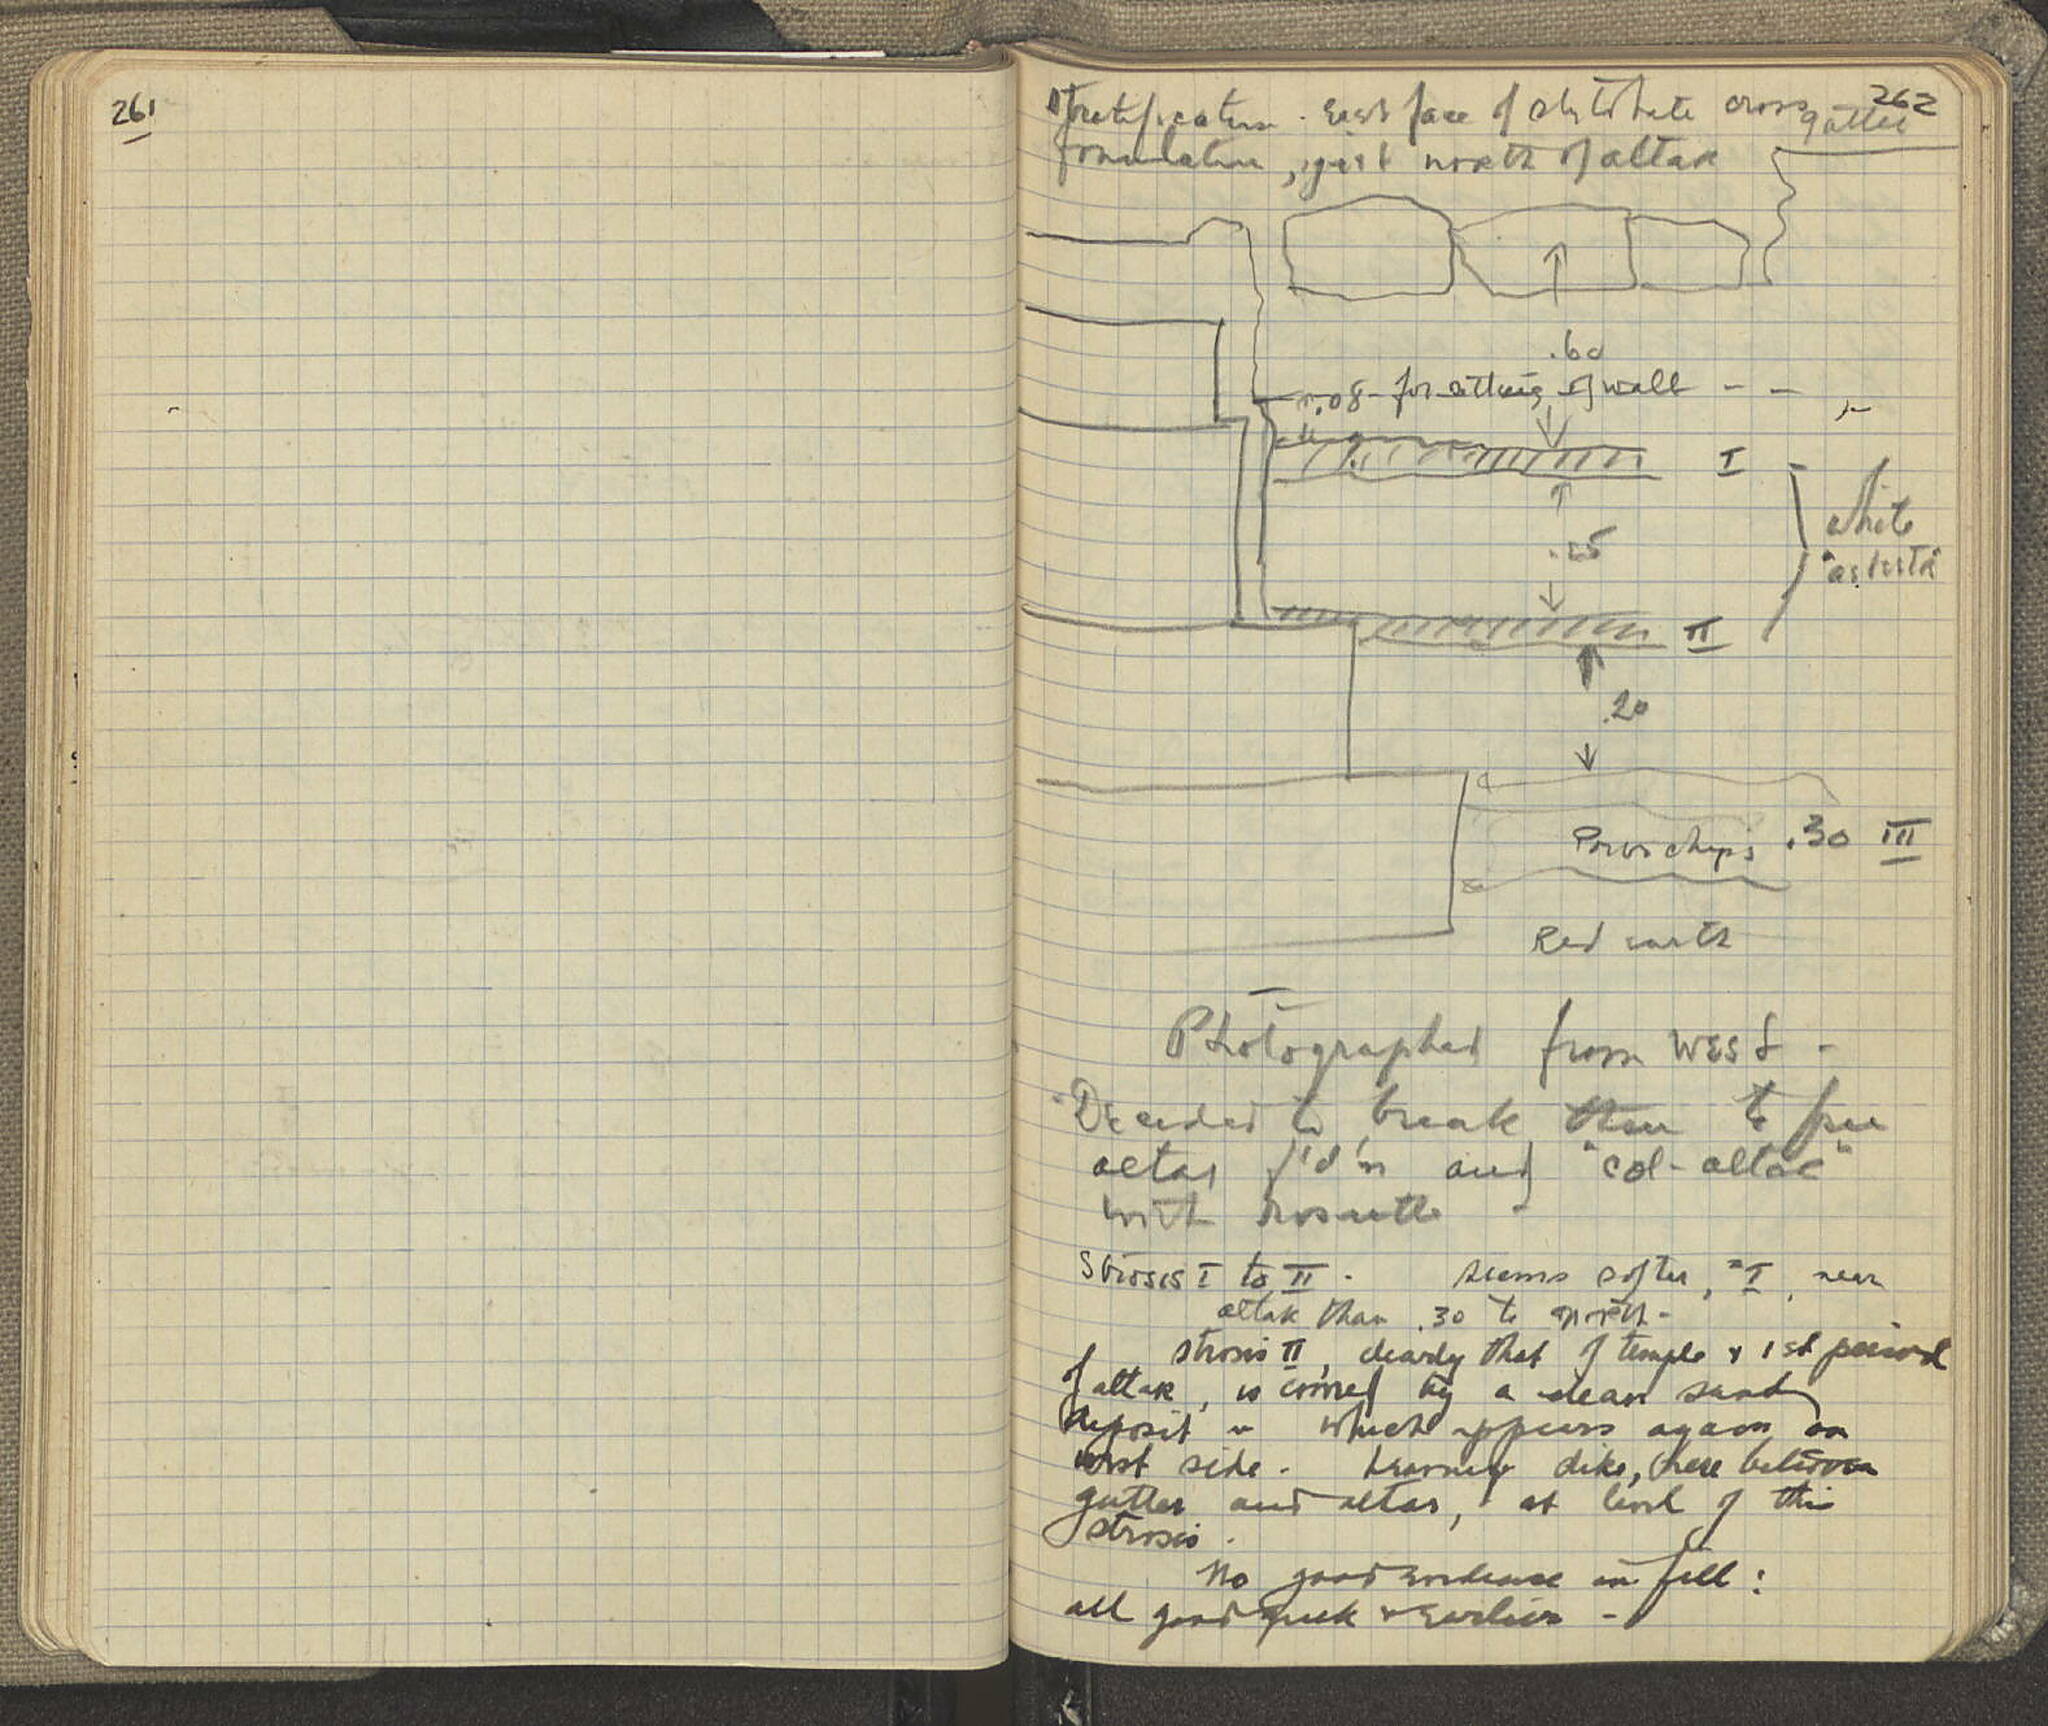 261
262
Stratification. East face of stylobate cross gutter
foundation, just north of altar
.60
.08 - for setting of wall - -
I
white
.25
II
.20
Poros chips .30 III
Red earth
Photographed from WEST -
Decided to break thru to free
altar and "col-altar"
with rosette -
Strosis I to II. Seems softer, I, near
altar than .30 to north -
Strosis II, clearly that of temple & 1st period
of altar, is covered by a clean sandy
deposit - which appears again on
west side. dike, here between
gutter and altar, at level of this
strosis.
No good evidence in fill:
all good Greek & Earlier -